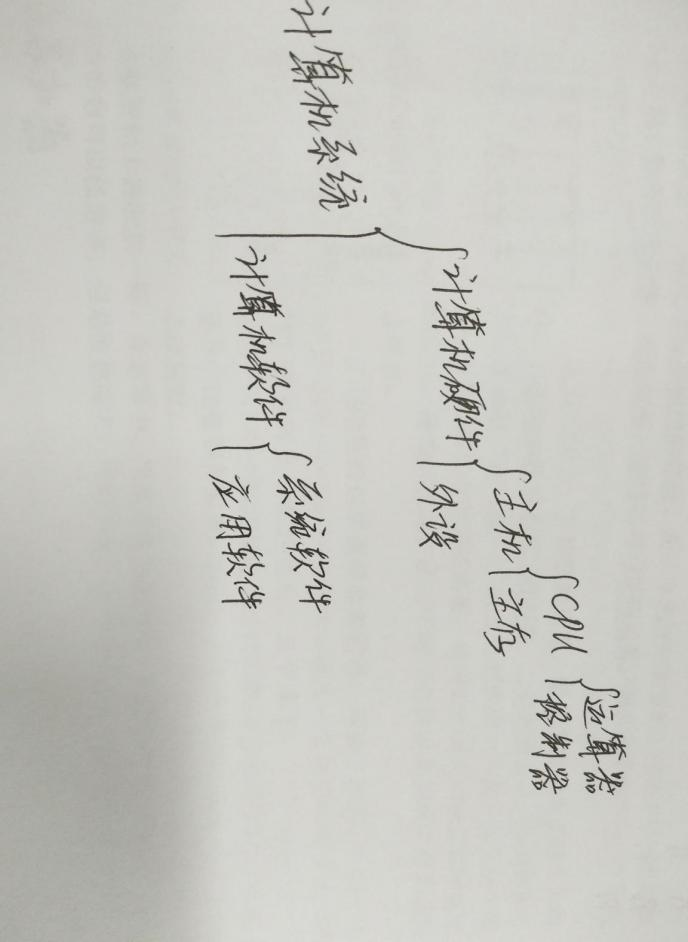 计算机系统
计算机硬件
主机
CPU
运算器
控制器
主存
外设
计算机软件
系统软件
应用软件